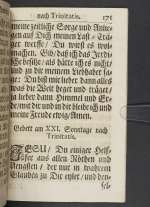 nach Trinitatis. 171
meine zeitliche Sorge und Anlie-
gen auf Dich meinen Last-Trä-
ger werffe/ Du wirst es wol
machen. Gib/ daß ich das Irrdi-
sche besitze/ als hätte ich es nicht/
und zu dir meinem Liebhaber sa-
ge: Du bist mir lieber dann alles
was die Welt heget und träget/
ja lieber dann Himmel und Er-
de und die und in dir bleibe ich und
meine Freude ewig/ Amen.
Gebett am XXI. Sonntage nach
Trinitatis.
JESU/ Du einiger Helf-
fer aus allen Nöthen und
Aengsten/ der nur in wahrem
Glauben zu Dir eylet/ und den-
sel-